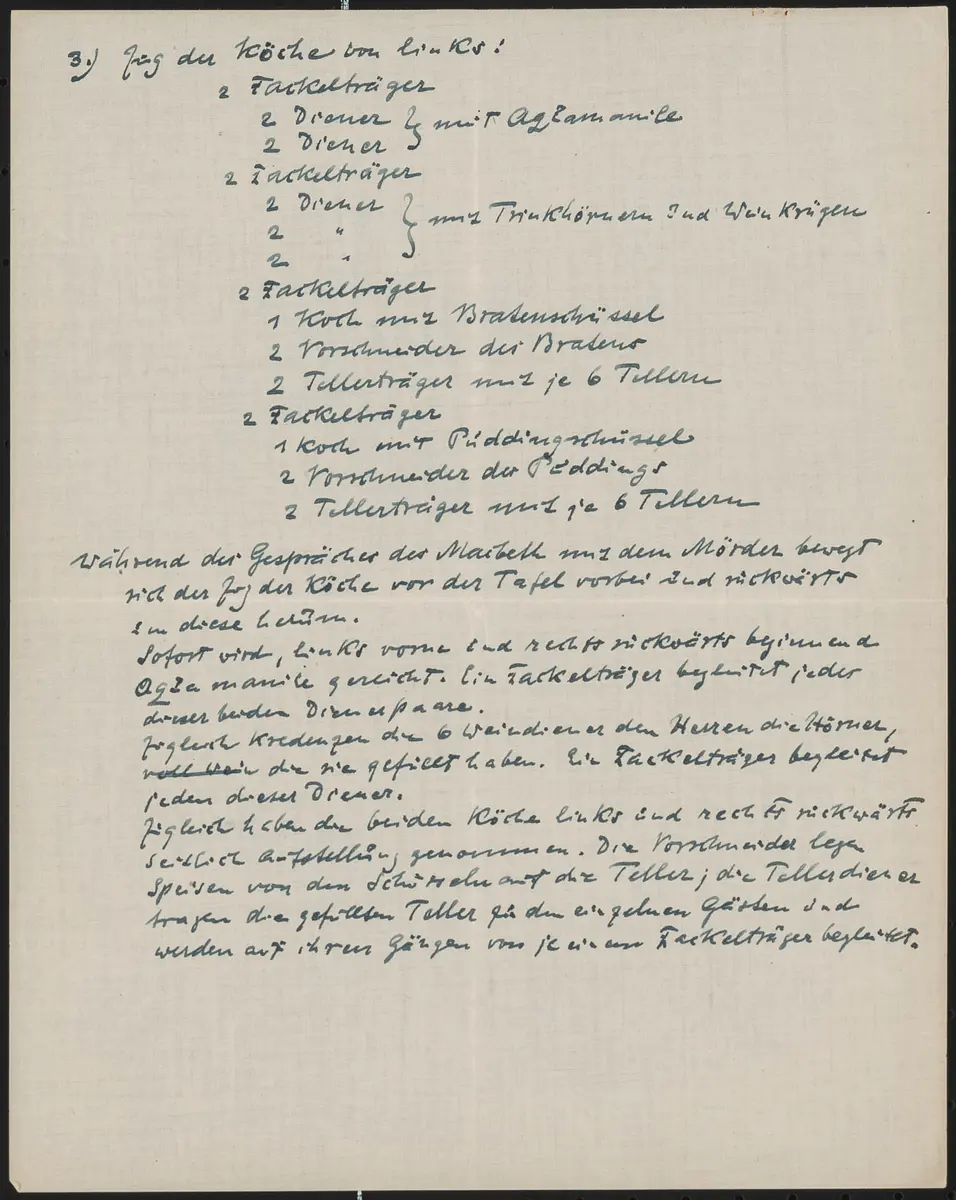 3.) Zug der Köche von links:
2 Fackelträger
2 Diener } mit Aquamanile
2 Diener
2 Fackelträger
2 Diener } mit Trinkhörnern und Weinkrügen
2 "
2 "
2 Fackelträger
1 Koch mit Bratenschüssel
2 Vorschneider des Bratens
2 Tellerträger mit je 6 Tellern
2 Fackelträger
1 Koch mit Puddingschüssel
2 Vorschneider des Puddings
2 Tellerträger mit je 6 Tellern
Während des Gespräches des Macbeth mit dem Mörder bewegt
sich der Zug der Köche vor der Tafel vorbei und rückwärts
um diese herum.
Sofort wird, links vorne und rechts rückwärts beginnend
Aquamanile gereicht. Ein Fackelträger begleitet jedes
dieser beiden Dienerpaare.
Zugleich kredenzen die 6 Weindiener den Herren die Hörner,
voll Wein die sie gefüllt haben. Ein Fackelträger begleitet
jeden dieser Diener.
Zugleich haben die beiden Köche links und rechts rückwärts
seitlich Aufstellung genommen. Die Vorschneider legen
Speisen von den Schüsseln auf die Teller; die Tellerdiener
tragen die gefüllten Teller zu den einzelnen Gästen und
werden auf ihren Gängen von je einem Fackelträger begleitet.